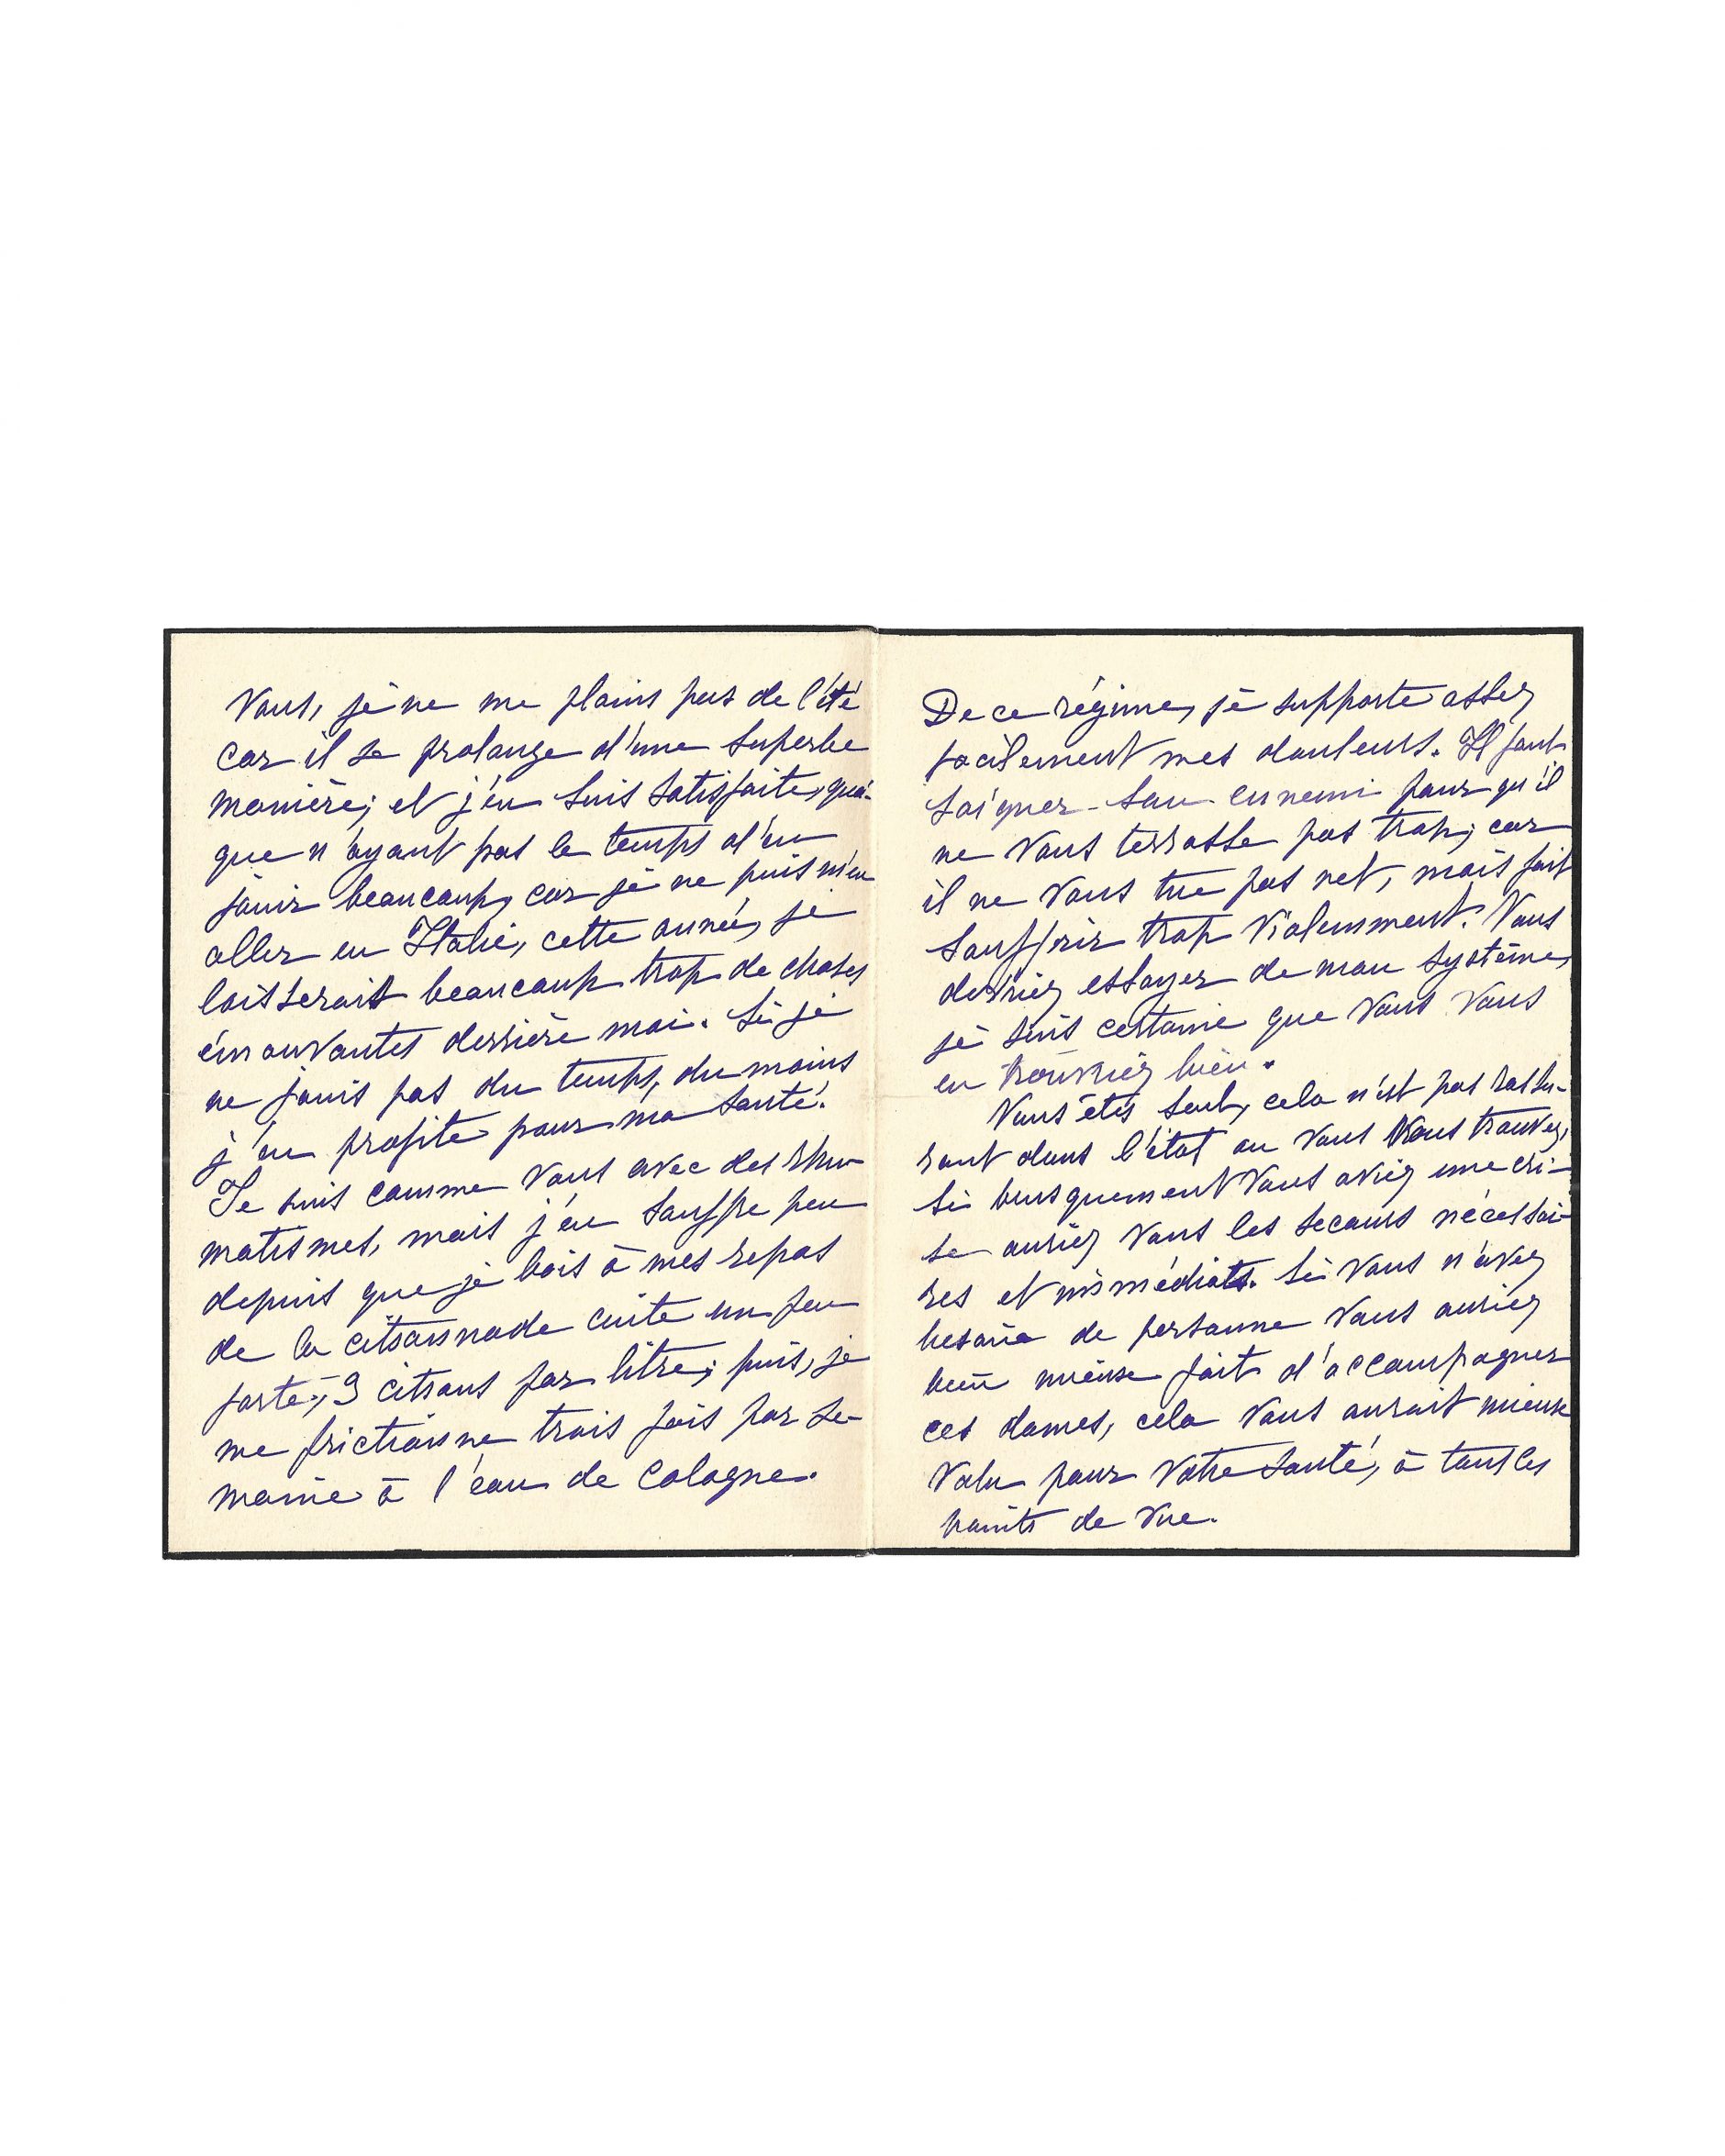 Vous, je ne me plains pas de l'été
car il se prolonge d'une superbe
manière; et j'en suis satisfaite, quoi-
que n'ayant pas le temps d'en
jouir beaucoup, car je ne puis m'en
aller en Italie, cette année, je
laisserais beaucoup trop de choses
émouvantes derrière moi. Si je
ne jouis pas du temps, du moins
j'en profite pour ma santé.
Je suis comme vous avec des rhu-
matismes, mais j'en souffre peu
depuis que je bois à mes repas
de la citronnade cuite un peu
forte, 3 citrons par litre; puis, je
me frictionne trois fois par se-
maine à l'eau de Cologne.
De ce régime, je supporte assez
facilement mes douleurs. Il faut
soigner son ennemi pour qu'il
ne vous terrasse pas trop; car
il ne vous tue pas net, mais fait
souffrir trop violemment. Vous
devriez essayer de mon système,
je suis certaine que vous vous
en trouvriez bien.
Vous êtes seul, cela n'est pas rassu-
rant dans l'état où vous vous trouvez,
si brusquement vous aviez une cri-
se auriez vous les secours nécessai-
res et immédiats. Si vous n'avez
besoin de personne vous auriez
bien mieux fait d'accompagner
ces dames, cela vous aurait mieux
valu pour votre santé, à tous les
points de vue.